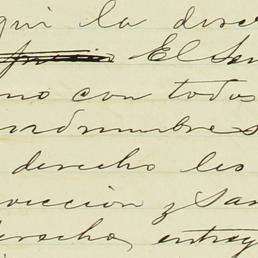 qui la dere
El Sen
no con todos
idumbres
derecho les
viccion y San
derecho, entreg